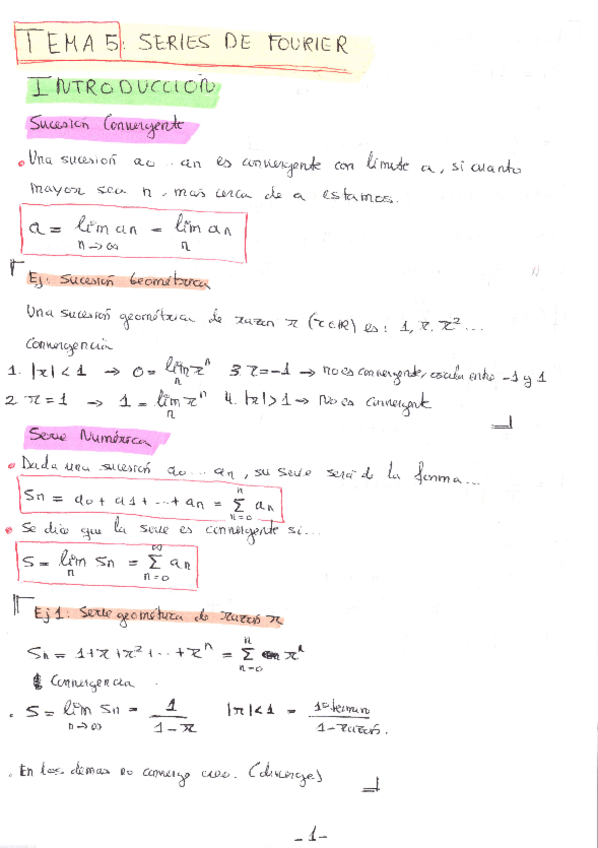 TEMA 5: SERIES DE FOURIER
INTRODUCCIÓN
Sucesión Convergente
• Una sucesión a0 ... an es convergente con límite a, si cuanto
mayor sea n, mas cerca de a estamos.
a = lim an = lim an
n→∞ n
Ej: Sucesión Geométrica
Una sucesión geométrica de razon r (r∈ℝ) es: 1, r, r² ...
Convergencia
1. |r| < 1 → 0 = lim rⁿ 3 r = -1 → no es convergente, oscila entre -1 y 1
n
2 r = 1 → 1 = lim rⁿ 4. |r| > 1 → No es convergente
n
Serie Numérica
• Dada una sucesión a0 ... an, su serie será de la forma...
Sn = a0 + a1 + ... + an = Σ an
n
n=0
• Se dice que la serie es convergente si...
S = lim Sn = Σ an
n ∞
n=0
Ej 1: Serie geométrica de razón r
Sn = 1 + r + r² + ... + rⁿ = Σ rⁿ
n
n=0
Convergencia
. S = lim Sn = 1 / (1 - r) |r| < 1 = 1º termino / (1 - razón).
n→∞
. En los demas no converge (diverge)
- 1 -